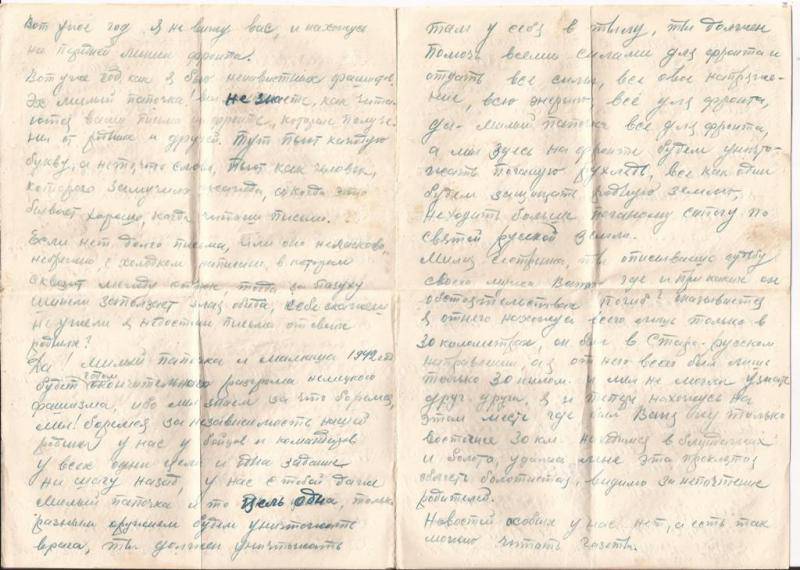 Вот уже год я не вижу вас, и нахожусь
на первой линии фронта.
Вот уже год, как я бью ненавистных фашистов.
Эх милый папочка! вы не знаете, как чита-
ются ваши письма на фронте, которые получе-
ны от родных и друзей. Тут пьют каждую
букву, а не то что слова, пьют как человек,
которого замучила жажда, а когда это
бывает хорошо, когда читаешь письмо.
Если нет долго письма, или оно неласково,
небрежно, с холодком написано, в котором
сквозит между строк тоска за пазуху
шинели заползает злая обида, себе скажешь
неужели я недостоин письма от своих
родных?
Да! милый папочка и мамаша 1942 год
будет годом окончательного разгрома немецкого
фашизма, ибо мы знаем за что боремся,
мы! боремся за независимость нашей
родины у нас у бойцов и командиров
у всех одни цели и одно задание
ни шагу назад, у нас с тобой даже
милый папочка и то цель одна, только
разным оружием будем уничтожать
врага, ты должен уничтожать
там у себя в тылу, ты должен
помочь всеми силами для фронта и
отдать все силы, все свое напряже-
ние, всю энергию, всё для фронта,
да милый папочка все для фронта,
а мы здесь на фронте будем уничто-
жать поганую рухлядь, все как один
будем защищать родную землю,
не ходить больше поганому сапогу по
святой русской земле.
Милая сестрица, ты описываешь судьбу
своего мужа Вани где и при каких он
обстоятельствах погиб? оказывается
я от него находился всего лишь только в
30 километрах, он был в Старо-русском
направлении, а я от него всего был лишь
только 30 килом. и мы не могли узнать
друг друга. Я и теперь нахожусь на
этом месте где был Ваня ему только
восточнее 30 км. находимся в блиндажах
и болота, удалась мне эта проклятая
область болотистая, видимо за непочтение
родителей.
Новостей особых у нас нет, а есть так
можно читать газеты.